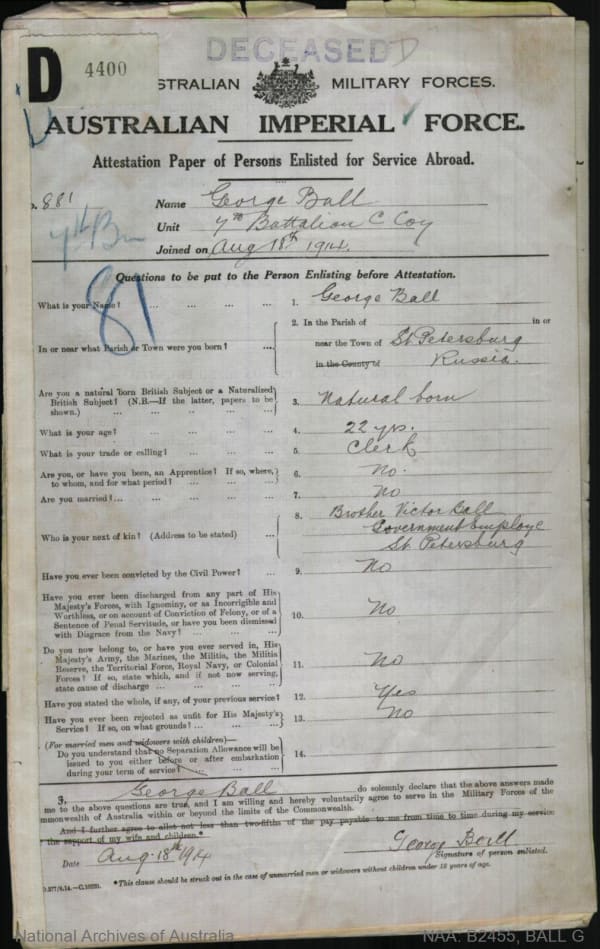 DECEASED D
D 4400
STRALIAN MILITARY FORCES.
AUSTRALIAN IMPERIAL FORCE.
Attestation Paper of Persons Enlisted for Service Abroad.
o. 881 Name George Ball
7th Bn Unit 7th Battalion C Coy
Joined on Aug 18th 1914.
81
Questions to be put to the Person Enlisting before Attestation.
What is your Name? ... ... ... ... 1. George Ball
2. In the Parish of in or
In or near what Parish or Town were you born? ... near the Town of St Petersburg
in the County of Russia.
Are you a natural born British Subject or a Naturalized
British Subject? (N.B.—If the latter, papers to be
shown.) ... ... ... ... 3. Natural born
What is your age? ... ... ... ... 4. 22 yrs.
What is your trade or calling? ... ... ... 5. Clerk
Are you, or have you been, an Apprentice? If so, where,
to whom, and for what period? ... ... ... 6. No.
Are you married? ... ... ... ... 7. No
8. Brother Victor Ball
Who is your next of kin? (Address to be stated) ... Government Employe
St Petersburg
Have you ever been convicted by the Civil Power? ... 9. No
Have you ever been discharged from any part of His
Majesty's Forces, with Ignominy, or as Incorrigible and
Worthless, or on account of Conviction of Felony, or of a
Sentence of Penal Servitude, or have you been dismissed
with Disgrace from the Navy? ... ... ... 10. No
Do you now belong to, or have you ever served in, His
Majesty's Army, the Marines, the Militia, the Militia
Reserve, the Territorial Force, Royal Navy, or Colonial
Forces? If so, state which, and if not now serving,
state cause of discharge ... ... ... 11. No
Have you stated the whole, if any, of your previous service? 12. Yes
Have you ever been rejected as unfit for His Majesty's
Service? If so, on what grounds? ... ... 13. No
(For married men and widowers with children)—
Do you understand that no Separation Allowance will be
issued to you either before or after embarkation
during your term of service? ... ... 14.
3. George Ball do solemnly declare that the above answers made
me to the above questions are true, and I am willing and hereby voluntarily agree to serve in the Military Forces of the
mmonwealth of Australia within or beyond the limits of the Commonwealth.
And I further agree to allot not less than two-fifths of the pay payable to me from time to time during my service
the support of my wife and children.*
George Ball
Date Aug. 18th 1914 Signature of person enlisted.
*This clause should be struck out in the case of unmarried men or widowers without children under 18 years of age.
National Archives of Australia NAA: B2455, BALL G